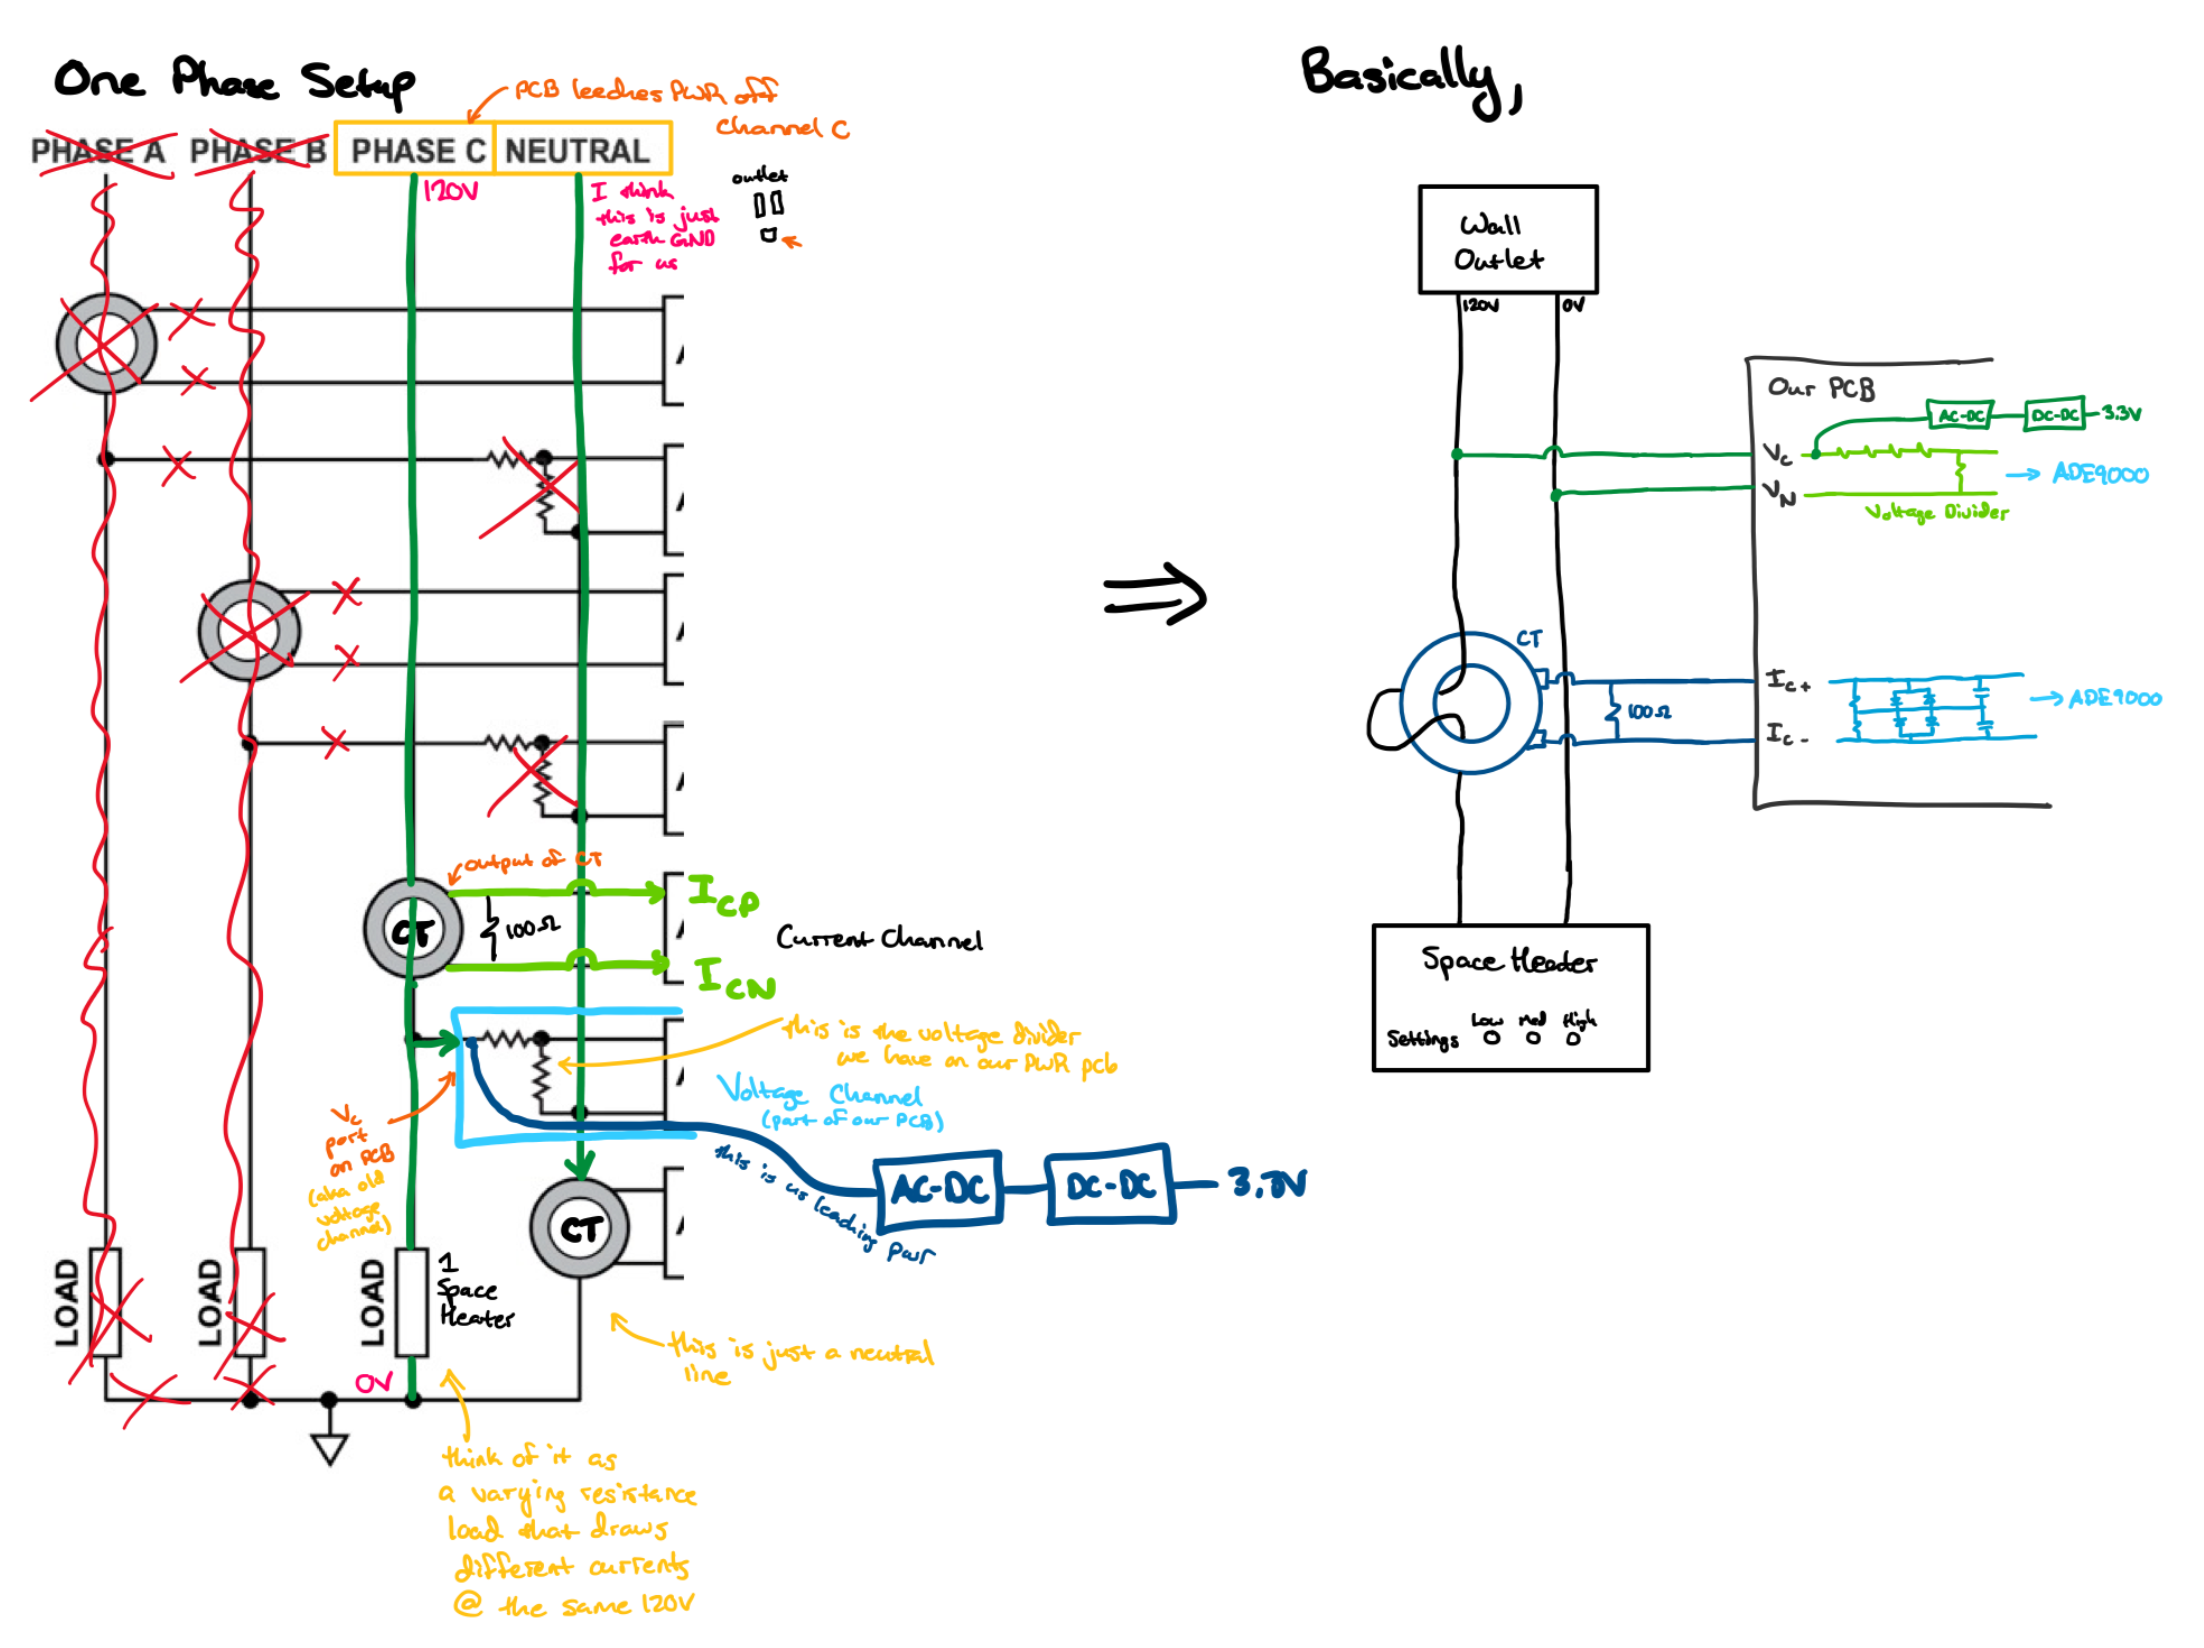 One Phase Setup
PCB leeches PWR off
Channel C
PHASE A
PHASE B
PHASE C
NEUTRAL
120V
I think
this is just
earth GND
for us
outlet
A
A
A
A
output of CT
CT
100Ω
I CP
I CN
A
Current Channel
this is the voltage divider
we have on our PWR pcb
A
Voltage Channel
(part of our PCB)
Vc
port
on PCB
(aka old
voltage
channel)
this is us leaching pwr
AC-DC
DC-DC
3.3V
CT
A
LOAD
LOAD
LOAD
1
Space
Heater
this is just a neutral
line
0V
think of it as
a varying resistance
load that draws
different currents
@ the same 120V
Basically,
Wall
Outlet
120V
0V
Our PCB
AC-DC
DC-DC
3.3V
Vc
VN
ADE9000
Voltage Divider
CT
100Ω
Ic+
Ic-
ADE9000
Space Heater
Settings
Low
Med
High